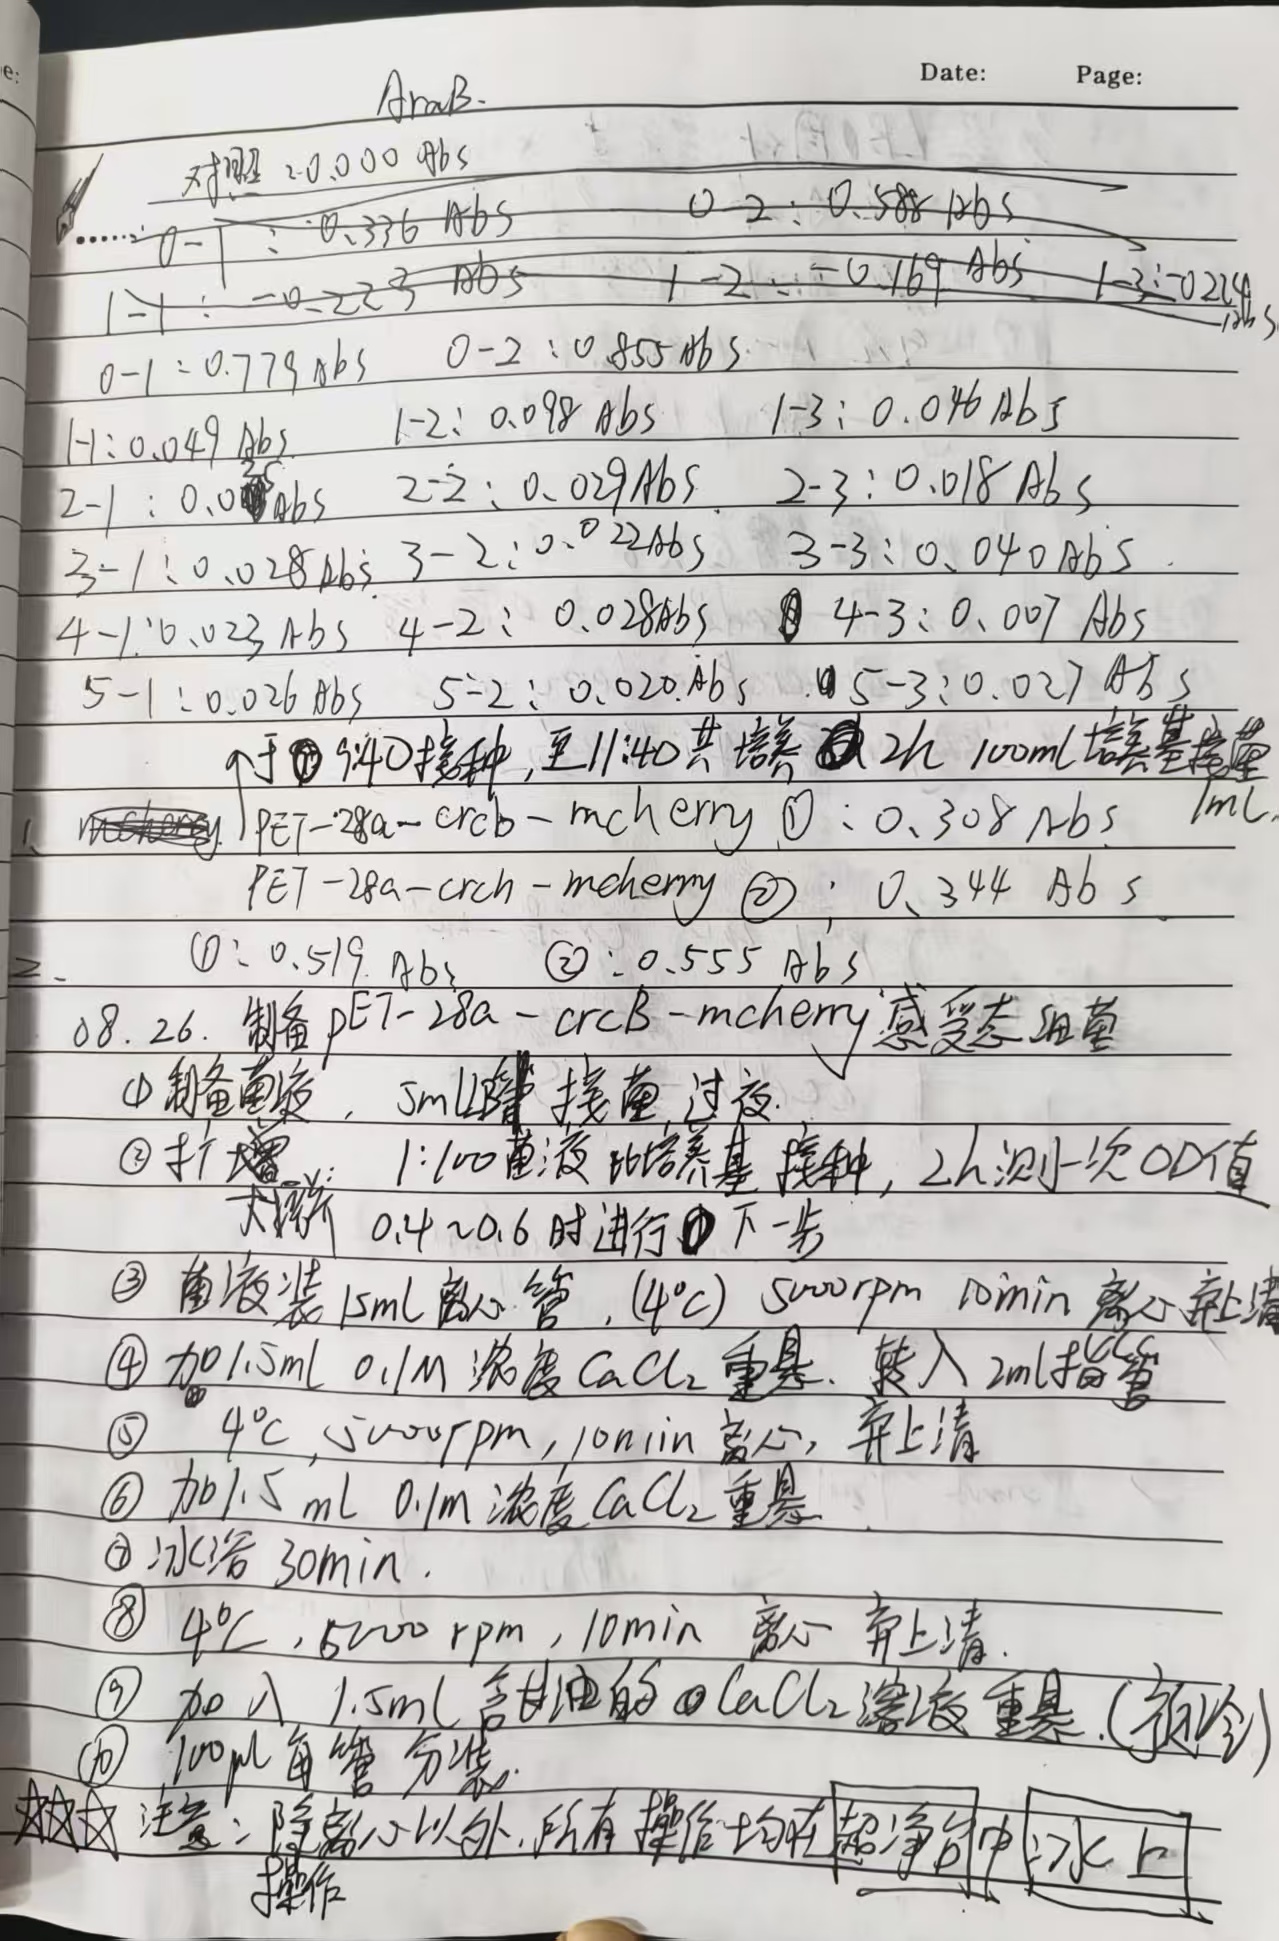 Date: Page:
AraB.
对照:0.000 Abs
0-1: 0.336 Abs 0-2: 0.588 Abs
1-1: -0.223 Abs 1-2: -0.169 Abs 1-3:-0.224 Abs
0-1:0.779 Abs 0-2:0.855 Abs.
1-1:0.049 Abs. 1-2:0.098 Abs 1-3:0.046 Abs
2-1:0.025 Abs 2-2:0.029 Abs 2-3:0.018 Abs
3-1:0.028 Abs 3-2:0.022 Abs 3-3:0.040 Abs.
4-1:0.023 Abs 4-2:0.028 Abs 4-3:0.007 Abs
5-1:0.026 Abs 5-2:0.020 Abs 5-3:0.027 Abs
于9:40接种,至11:40共培养2h 100ml培养基接菌
1mL.
1. mcherry PET-28a-crcb-mcherry ①:0.308 Abs
PET-28a-crch-mcherry ②:0.344 Abs.
2. ①:0.519 Abs ②:0.555 Abs
08.26. 制备pET-28a-crcB-mcherry感受态细菌
①制备菌液, 5mLLB管接菌过夜.
②扩增 1:100菌液比培养基接种,2h测一次OD值
大摇 0.4~0.6时进行下一步
③菌液装15ml离心管,(4℃) 5000rpm 10min 离心弃上清
④加1.5ml 0.1M浓度CaCl₂重悬.转入2ml指管
⑤4℃,5000rpm,10min离心,弃上清
⑥加1.5mL 0.1m浓度CaCl₂重悬.
⑦冰浴30min.
⑧4℃,5000rpm,10min 离心 弃上清.
⑨加入1.5mL含甘油的CaCl₂溶液重悬.(预冷)
⑩100μl每管分装.
☆☆☆注意:除离心以外,所有操作均在超净台中冰上
操作